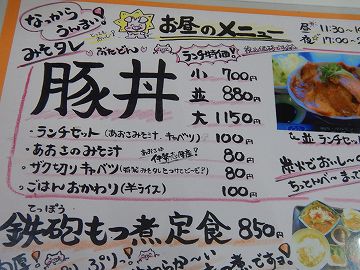 なっから
うんまい!
お昼のメニュー
昼 11:30~1
夜 17:00~2
みそタレ
ぶたどん
ランチ特価!
豚丼
小 700円
並 880円
大 1150円
・ランチセット(あおさみそ汁・キャベツ) 100円
・あおさのみそ汁 80円
・ザク切りキャベツ 80円
・ごはんおかわり(半ライス) 100円
並 ランチセット
てっぽう
鉄砲もつ煮定食 850円